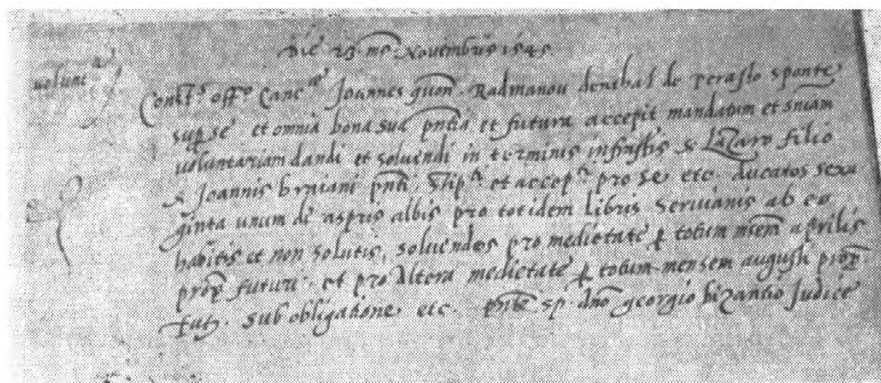 Die 23 mēs Novembris 1545
volunt.ᵃ
Const.ˢ off.º Canc.ᵉ Joannes quon. Radmanou de perasto sponte
sup se et omnia bona sua pn̄tia et futura accepit mandatum et sn̄iam
voluntariam dandi et soluendi in terminis infrāstis S. Lazaro filio
S. Joannis braiani pn̄ti, stip.ᵗⁱ et accep.ᵗⁱ pro se etc. ducatos sexa
ginta unum de aspris albis pro totidem libris Seruianis ab eo
habitis et non solutis, soluendos pro medietate p totum mēsem aprilis
prop. futuri et pro altera medietate p totum mensem augusti prop.
fut. sub obligatione etc. pn̄te sp. dn̄o georgio bizantio Judice